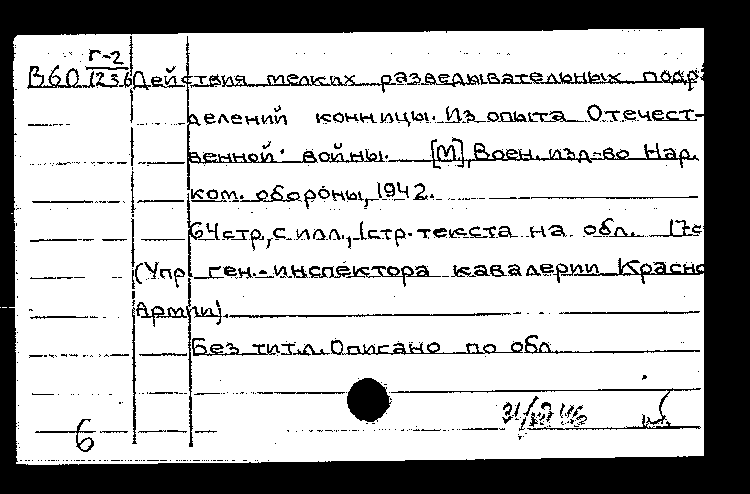 Г-2
В60 1236 Действия мелких разведывательных подр
делений конницы. Из опыта Отечест-
венной войны. [М], Воен. изд-во Нар.
ком. обороны, 1942.
64 стр, с илл., 1 стр. текста на обл. 17с
(Упр. ген.-инспектора кавалерии Красно
Армии).
Без тит.л. Описано по обл.
6